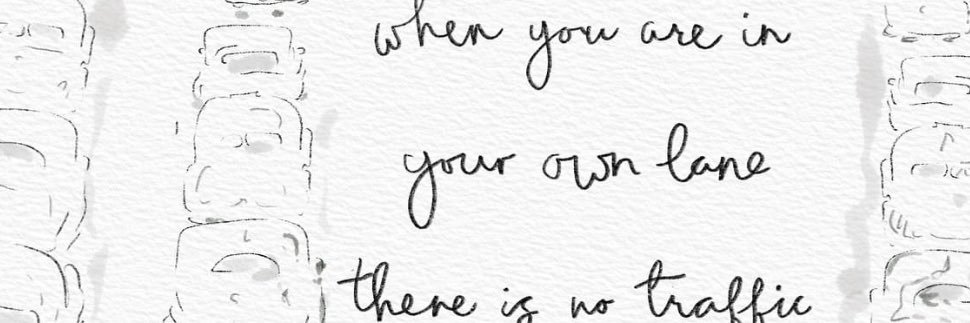 when you are in
your own lane
there is no traffic